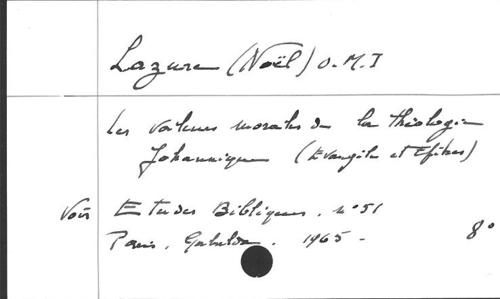 Lazure (Noël) O.M.I
Les valeurs morales de la théologie
Johannique (Evangile et Epîtres)
Voir Etudes Bibliques. n° 51
Paris, Gabalda. 1965 - 8°